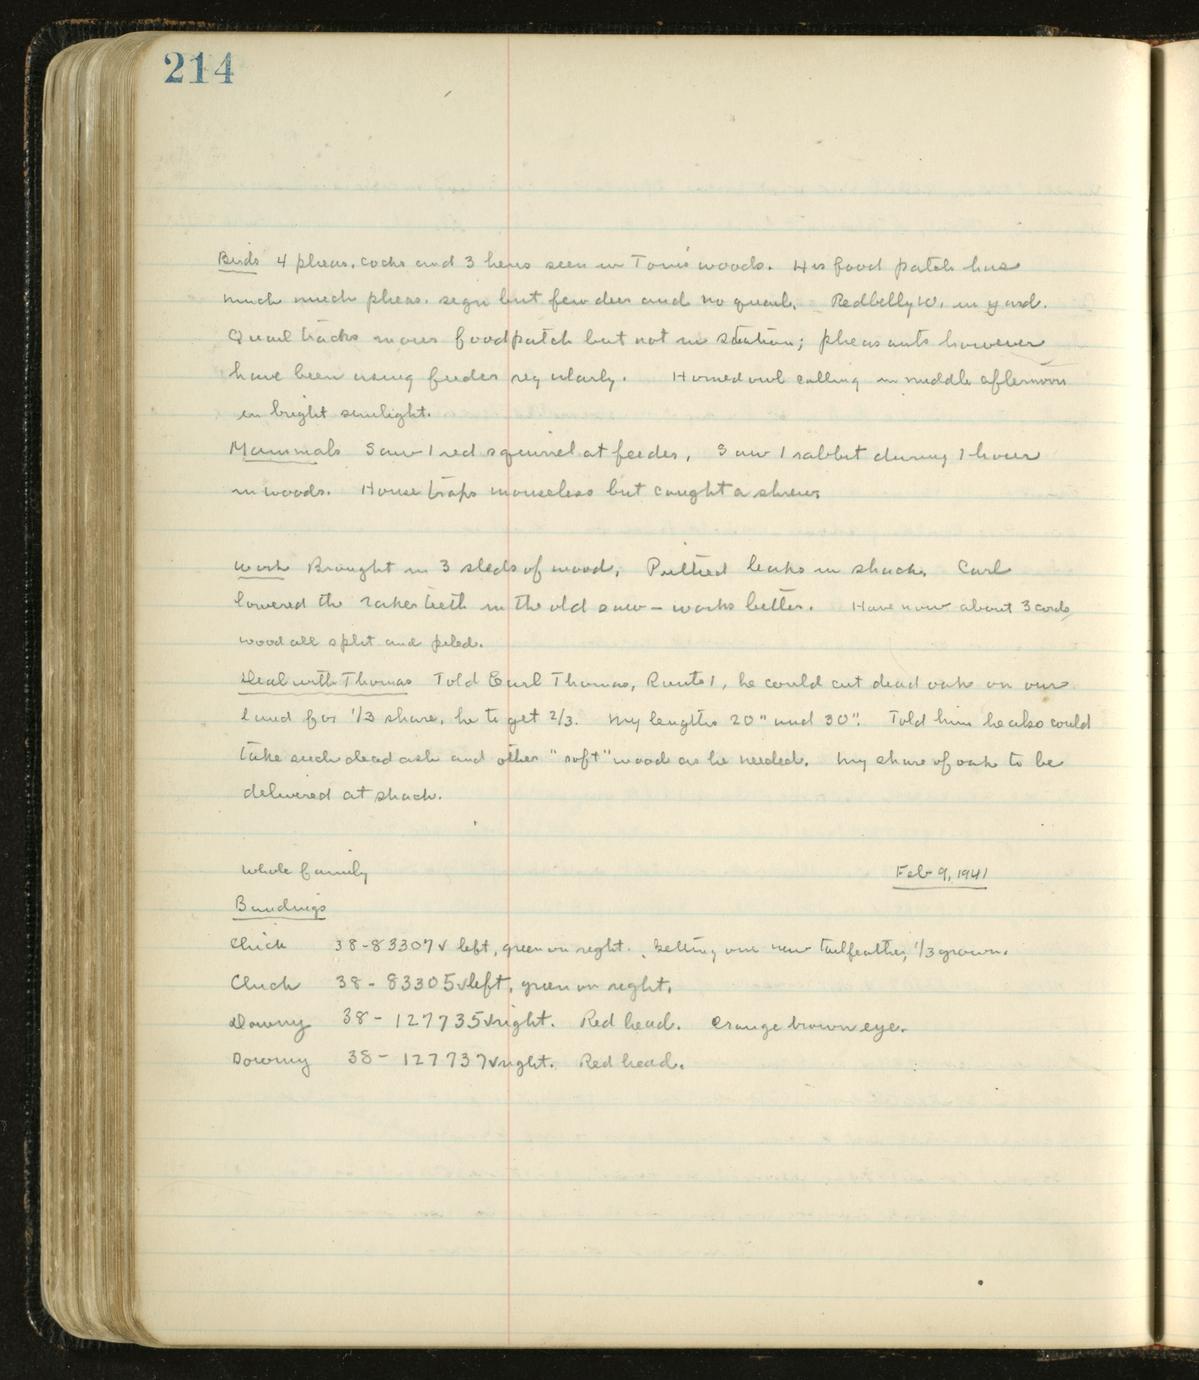 214
Birds 4 pheas. cocks and 3 hens seen in Tom's woods. His food patch has
much much pheas. sign but few deer and no quail. Redbelly W. in yard.
Quail tracks in our foodpatch but not in station; pheasants however
have been using feeder regularly. Horned owl calling in middle afternoon
in bright sunlight.
Mammals Saw 1 red squirrel at feeder, Saw 1 rabbit during 1 hour
in woods. House traps mouseless but caught a shrew.
Work Brought in 3 sleds of wood, Puttied leaks in shack, Carl
lowered the raker teeth in the old saw – works better. Have now about 3 cords
wood all split and piled.
Deal with Thomas Told Earl Thomas, Route 1, he could cut dead oak on our
land for 1/3 share, he to get 2/3. My lengths 20" and 30". Told him he also could
take such dead ash and other "soft" wood as he needed. My share of oak to be
delivered at shack.
Whole family Feb 9, 1941
Bandings
Chick 38-83307 √ left, green on right. Getting one new tailfeather, 1/3 grown.
Chick 38-83305 √ left, green on right.
Downy 38-127735 √ right. Red head. Orange brown eye.
Downy 38-127737 √ right. Red head.